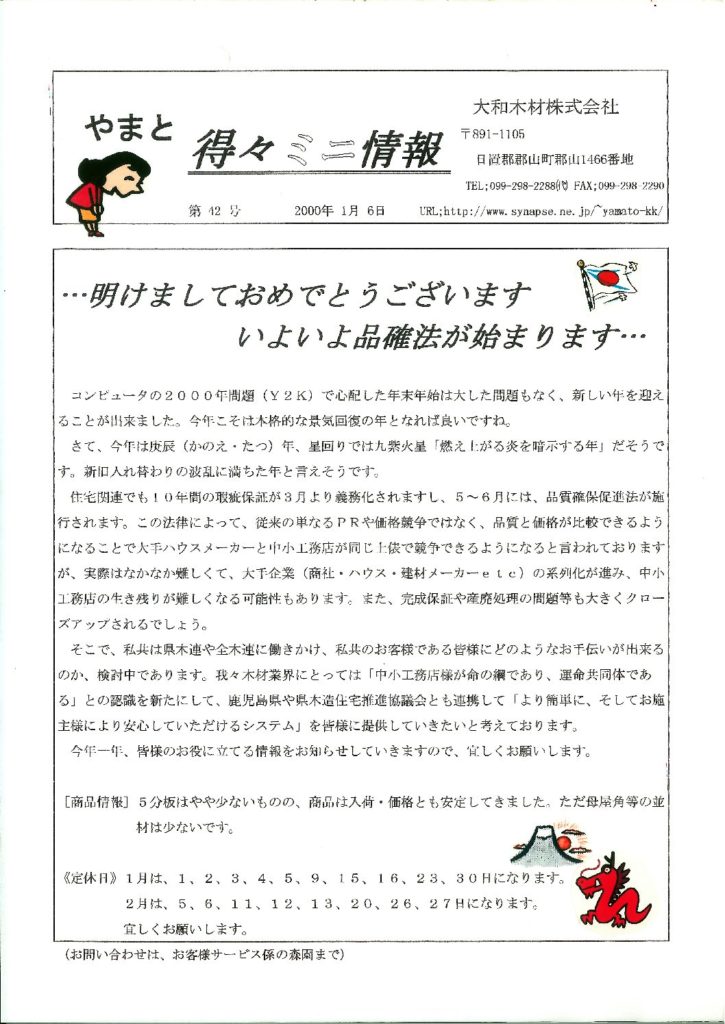 大和木材株式会社
やまと
得々ミニ情報
〒891-1105
日置郡郡山町郡山1466番地
TEL;099-298-2288㈹ FAX;099-298-2290
第 42 号 2000年 1月 6日 URL;http://www.synapse.ne.jp/~yamato-kk/
…明けましておめでとうございます
いよいよ品確法が始まります…
コンピュータの２０００年問題（Ｙ２Ｋ）で心配した年末年始は大した問題もなく、新しい年を迎え
ることが出来ました。今年こそは本格的な景気回復の年となれば良いですね。
さて、今年は庚辰（かのえ・たつ）年、星回りでは九紫火星「燃え上がる炎を暗示する年」だそうで
す。新旧入れ替わりの波乱に満ちた年と言えそうです。
住宅関連でも１０年間の瑕疵保証が３月より義務化されますし、５～６月には、品質確保促進法が施
行されます。この法律によって、従来の単なるＰＲや価格競争ではなく、品質と価格が比較できるよう
になることで大手ハウスメーカーと中小工務店が同じ土俵で競争できるようになると言われております
が、実際はなかなか難しくて、大手企業（商社・ハウス・建材メーカーｅｔｃ）の系列化が進み、中小
工務店の生き残りが難しくなる可能性もあります。また、完成保証や産廃処理の問題等も大きくクロー
ズアップされるでしょう。
そこで、私共は県木連や全木連に働きかけ、私共のお客様である皆様にどのようなお手伝いが出来る
のか、検討中であります。我々木材業界にとっては「中小工務店様が命の綱であり、運命共同体であ
る」との認識を新たにして、鹿児島県や県木造住宅推進協議会とも連携して「より簡単に、そしてお施
主様により安心していただけるシステム」を皆様に提供していきたいと考えております。
今年一年、皆様のお役に立てる情報をお知らせしていきますので、宜しくお願いします。
［商品情報］５分板はやや少ないものの、商品は入荷・価格とも安定してきました。ただ母屋角等の並
材は少ないです。
《定休日》１月は、１、２、３、４、５、９、１５、１６、２３、３０日になります。
２月は、５、６、１１、１２、１３、２０、２６、２７日になります。
宜しくお願いします。
（お問い合わせは、お客様サービス係の森園まで）